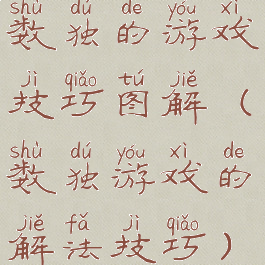 shù dú de yóu xì
数独的游戏
jì qiǎo tú jiě
技巧图解（
shù dú yóu xì de
数独游戏的
jiě fǎ jì qiǎo
解法技巧）